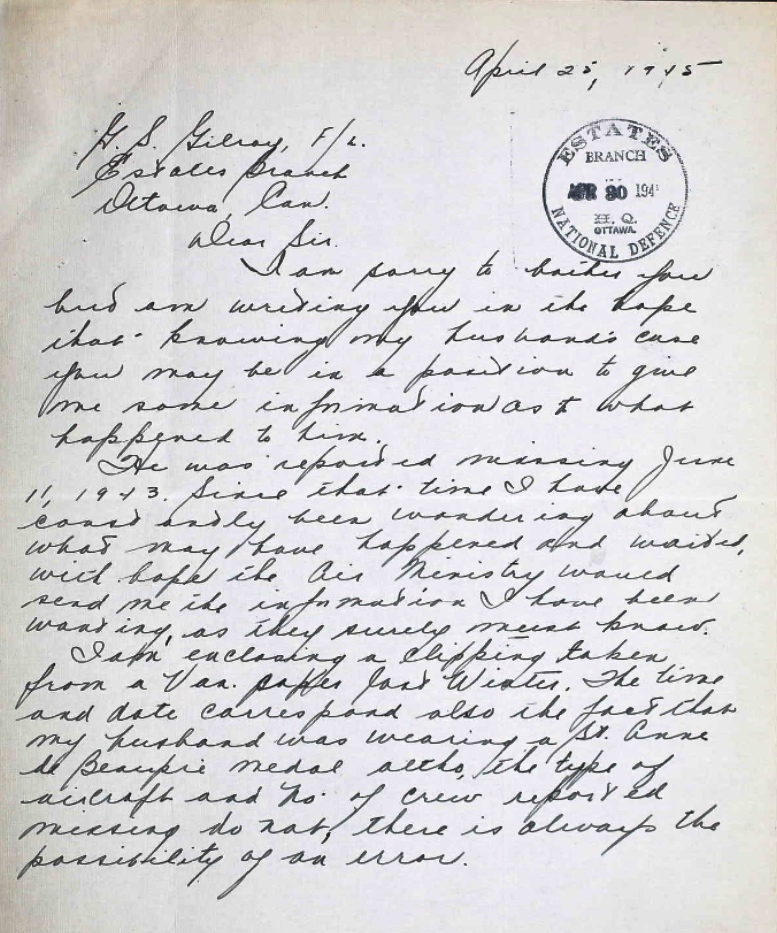 April 25, 1945
G. S. Gilroy, F/L.
Estates Branch
Ottawa, Can.
ESTATES
BRANCH
APR 30 194
H. Q.
OTTAWA.
NATIONAL DEFENCE
Dear Sir.
I am sorry to bother you
but am writing you in the hope
that knowing my husband's case
you may be in a position to give
me some information as to what
happened to him.
He was reported missing June
11, 1943. Since that time I have
constantly been wondering about
what may have happened and waited,
with hope the Air Ministry would
send me the information I have been
wanting, as they surely must know.
I am enclosing a clipping taken
from a Van. paper last Winter. The time
and date correspond also the fact that
my husband was wearing a St. Anne
de Beaupre medal altho, the type of
aircraft and No. of crew reported
missing do not, there is always the
possibility of an error.